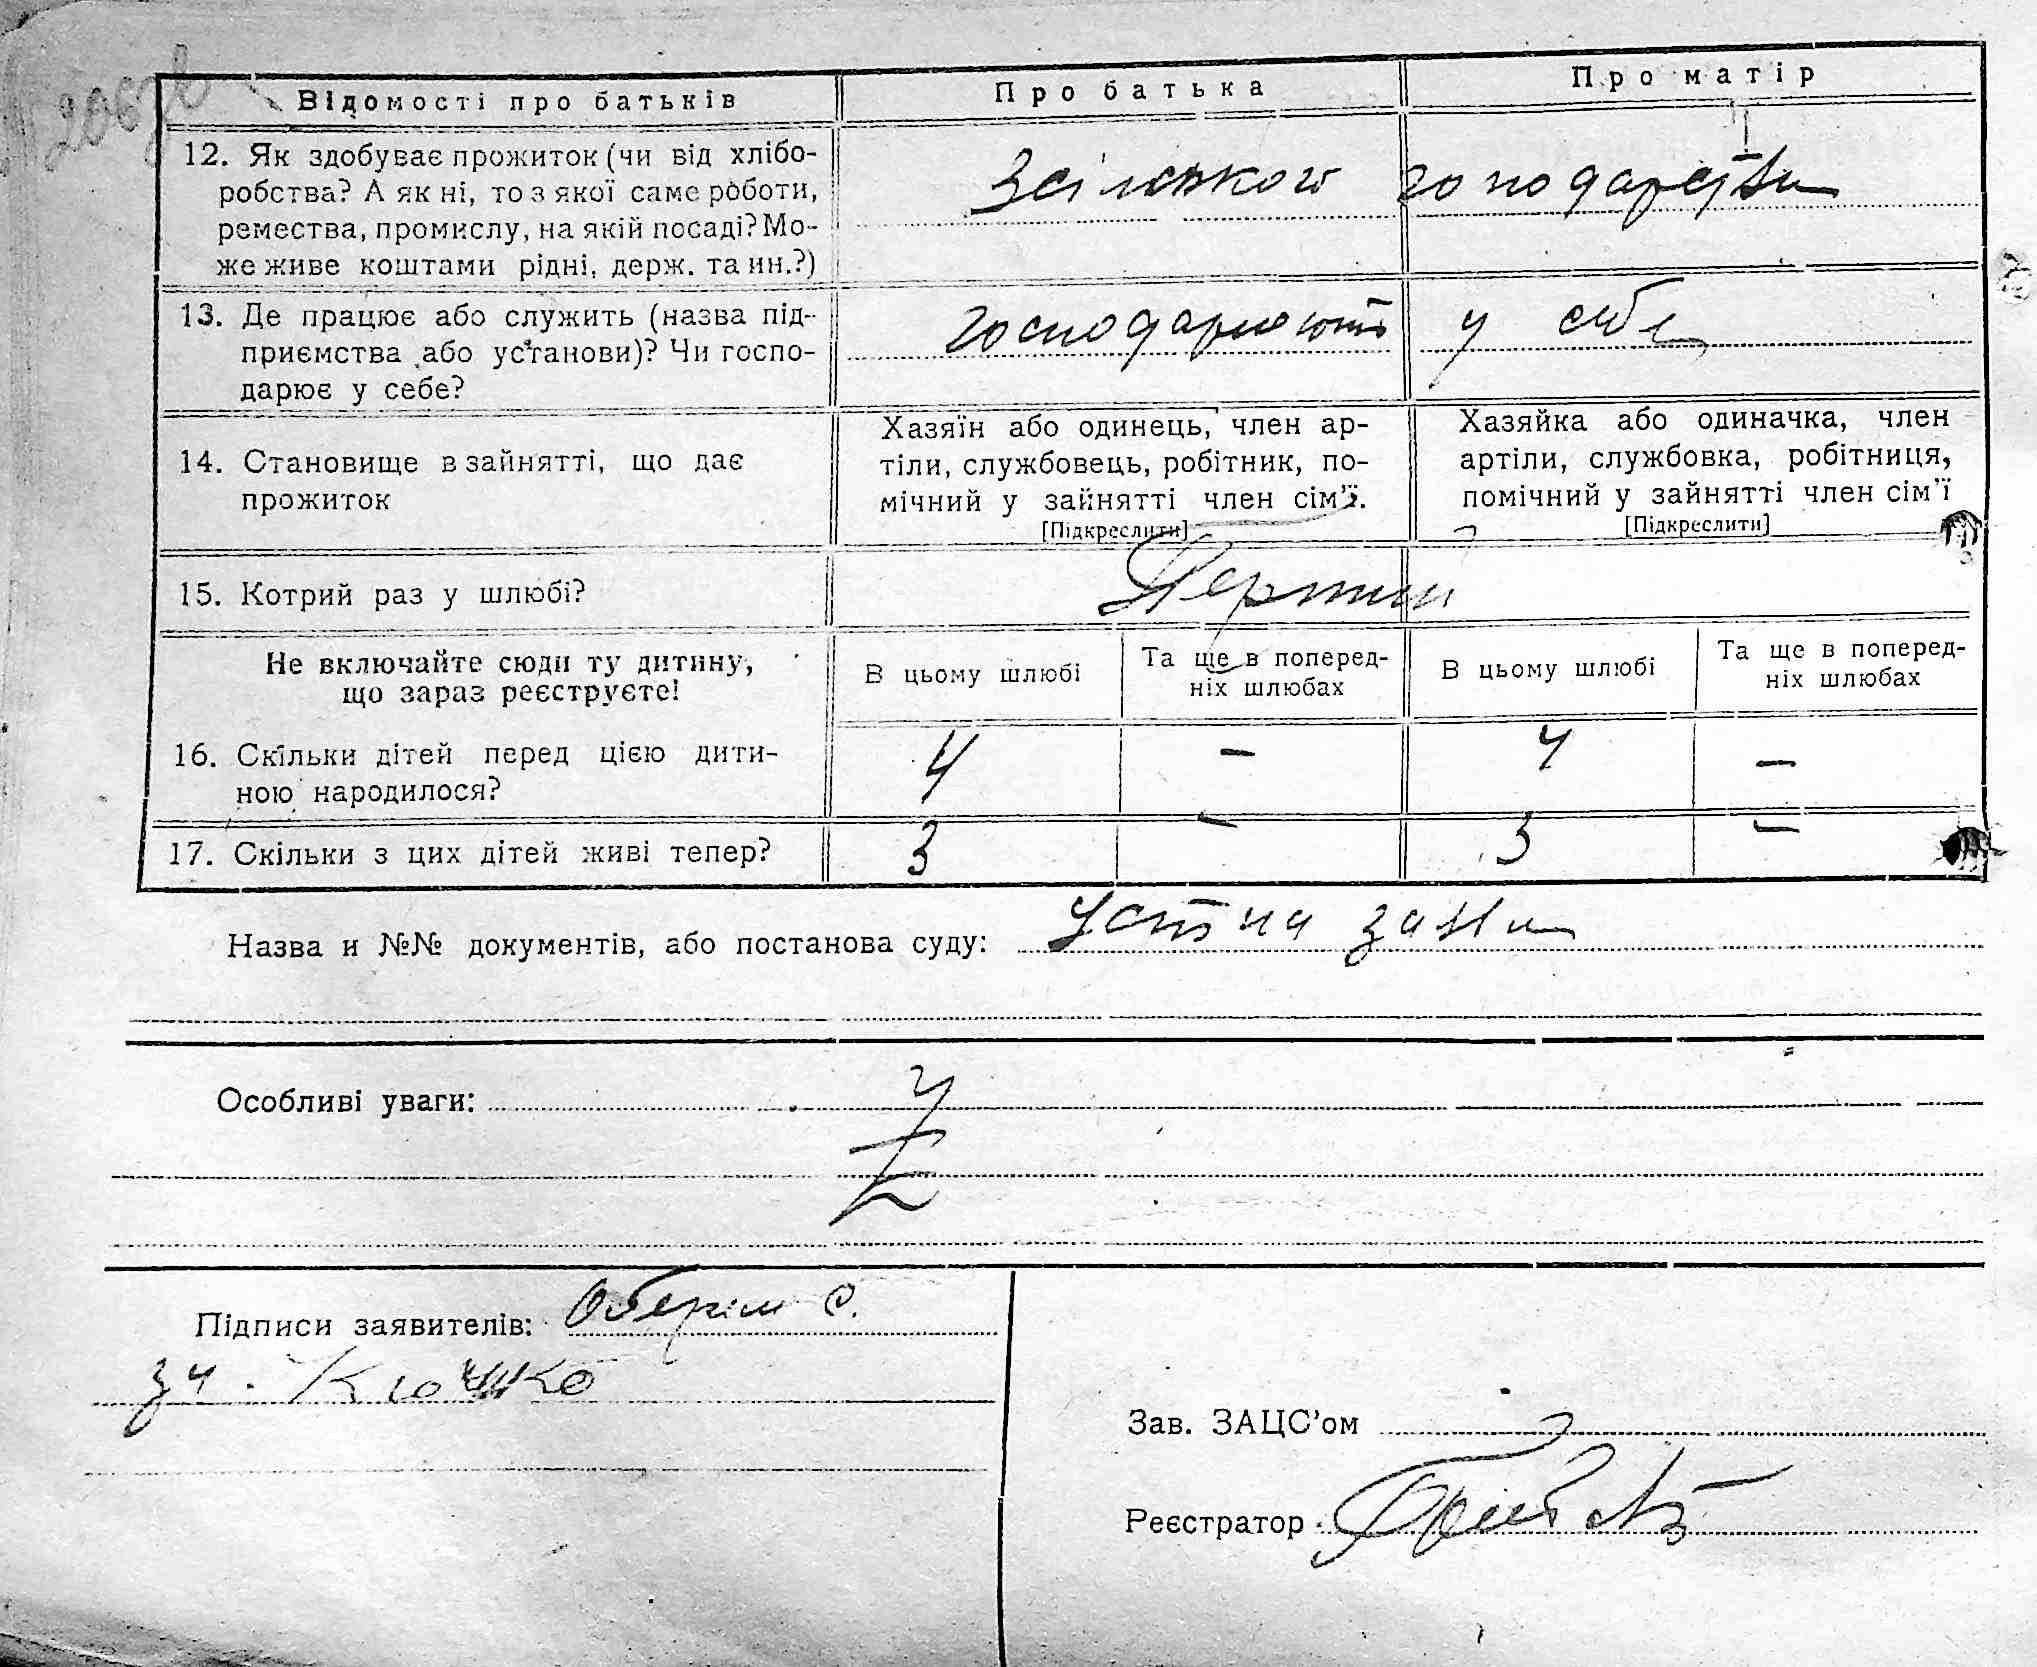 Відомості про батьків Про батька Про матір
12. Як здобуває прожиток (чи від хлібо-
робства? А як ні, то з якої саме роботи,
ремества, промислу, на якій посаді? Мо-
же живе коштами рідні, держ. та ин.?)
Зсільского господарства
13. Де працює або служить (назва під-
приємства або установи)? Чи госпо-
дарює у себе?
господарюють у себе
14. Становище в зайнятті, що дає
прожиток
Хазяїн або одинець, член ар-
тіли, службовець, робітник, по-
мічний у зайнятті член сім'ї.
[Підкреслити]
Хазяйка або одиначка, член
артіли, службовка, робітниця,
помічний у зайнятті член сім'ї
[Підкреслити]
15. Котрий раз у шлюбі?
Первий
Не включайте сюди ту дитину,
що зараз реєструєте!
В цьому шлюбі
Та ще в поперед-
ніх шлюбах
В цьому шлюбі
Та ще в поперед-
ніх шлюбах
16. Скільки дітей перед цією дити-
ною народилося?
4 — 4 —
17. Скільки з цих дітей живі тепер?
3 — 3 —
Назва и №№ документів, або постанова суду: Устна заява
Особливі уваги:
Підписи заявителів:
Клочко
Зав. ЗАЦС'ом
Реєстратор